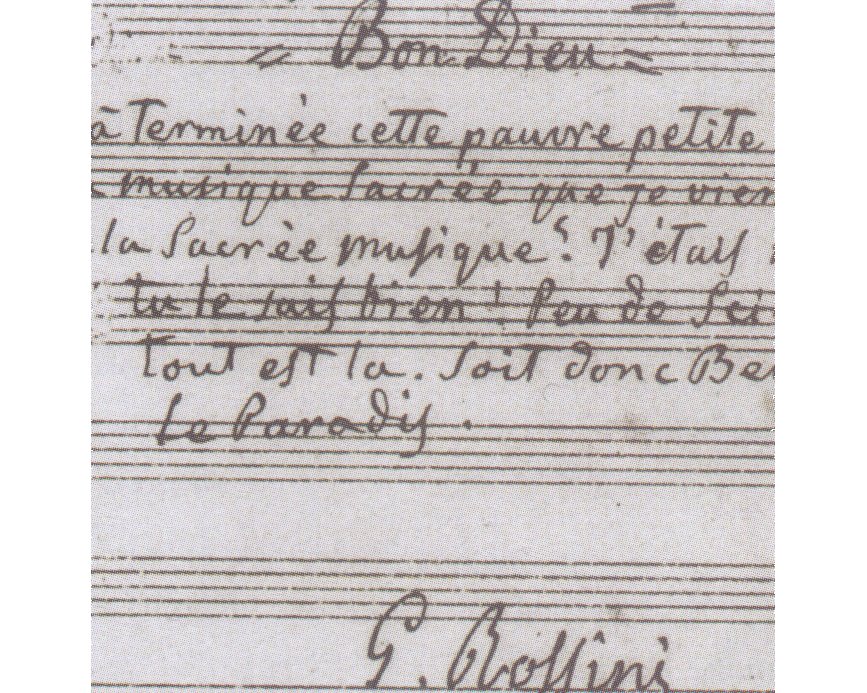 = Bon Dieu =
à Terminée cette pauvre petite
musique Sacrée que je vien
la Sacrée musique? J'étais
tu le sais bien! Peu de Sci
tout est la. Soit donc Be
Le Paradis.
G. Rossini